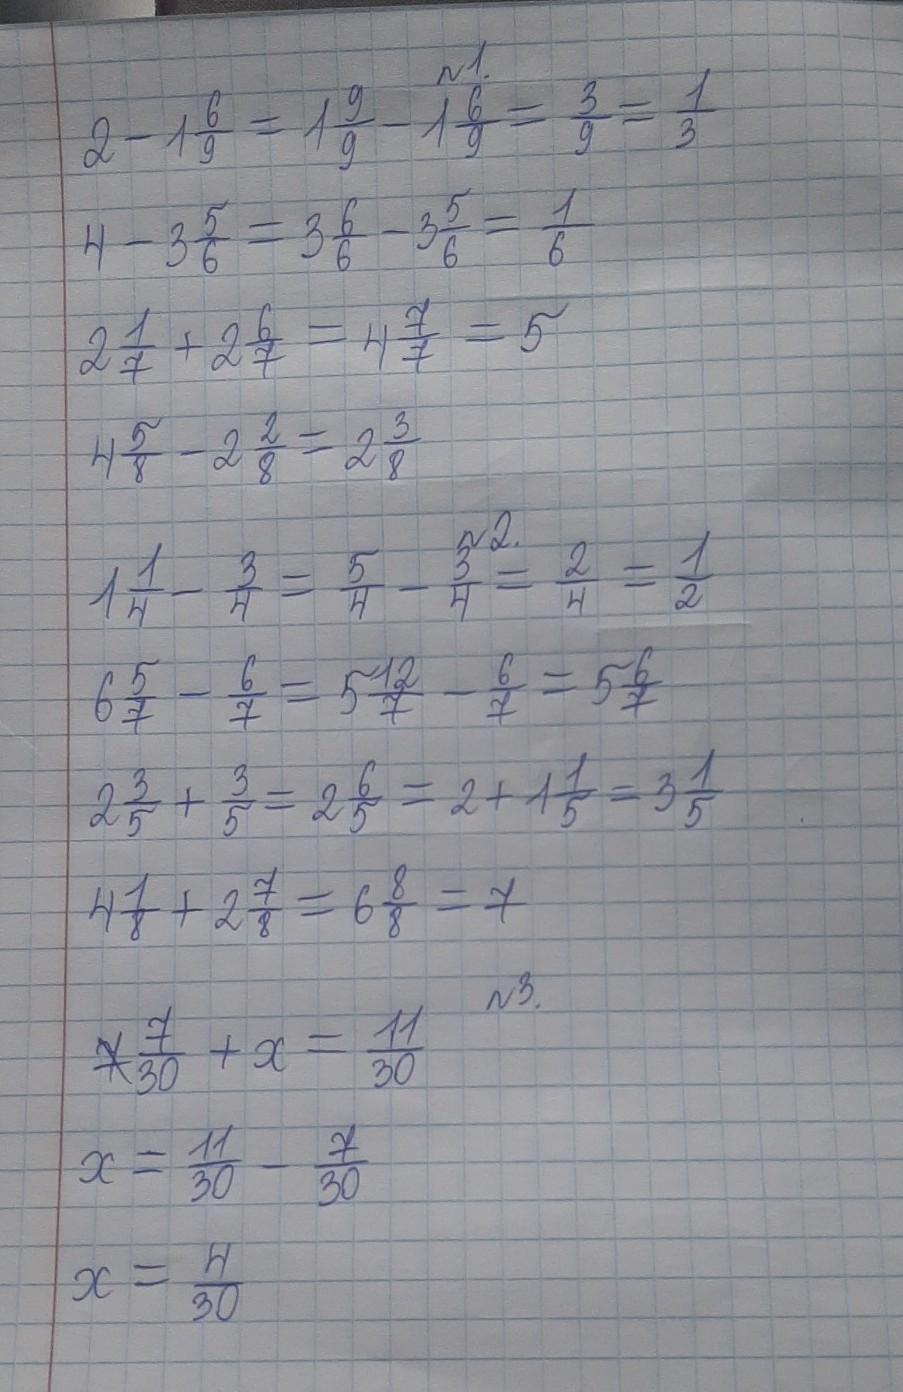 №1.
2 - 1 6/9 = 1 9/9 - 1 6/9 = 3/9 = 1/3
4 - 3 5/6 = 3 6/6 - 3 5/6 = 1/6
2 1/7 + 2 6/7 = 4 7/7 = 5
4 5/8 - 2 2/8 = 2 3/8
№2.
1 1/4 - 3/4 = 5/4 - 3/4 = 2/4 = 1/2
6 5/7 - 6/7 = 5 12/7 - 6/7 = 5 6/7
2 3/5 + 3/5 = 2 6/5 = 2 + 1 1/5 = 3 1/5
4 1/8 + 2 7/8 = 6 8/8 = 7
№3.
7/30 + x = 11/30
x = 11/30 - 7/30
x = 4/30